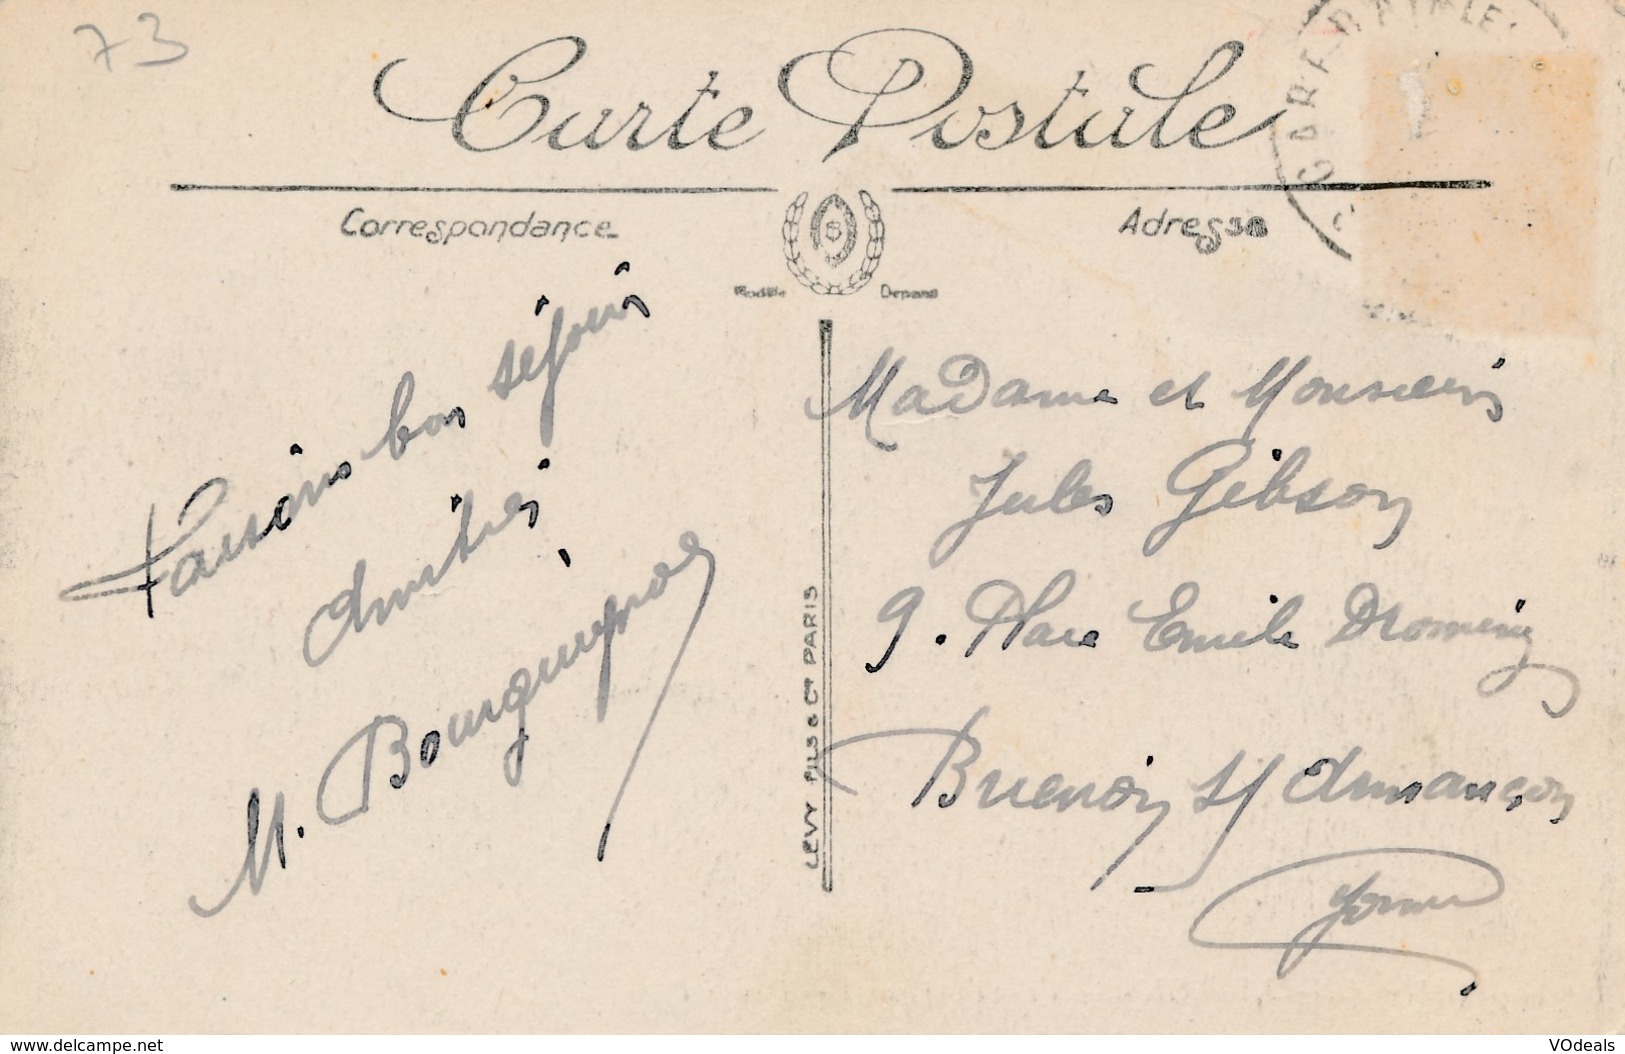 73
Carte Postale
GARE D'AIX LES
Correspondance
Adresse
Modèle Déposé
Passons bon séjour
Amitiés
M. Bourguignon
LEVY FILS & Cie PARIS
Madame et Monsieur
Jules Gibson
9. Place Emile
Brienon s/ Armançon
Yonne
www.delcampe.net
VOdeals